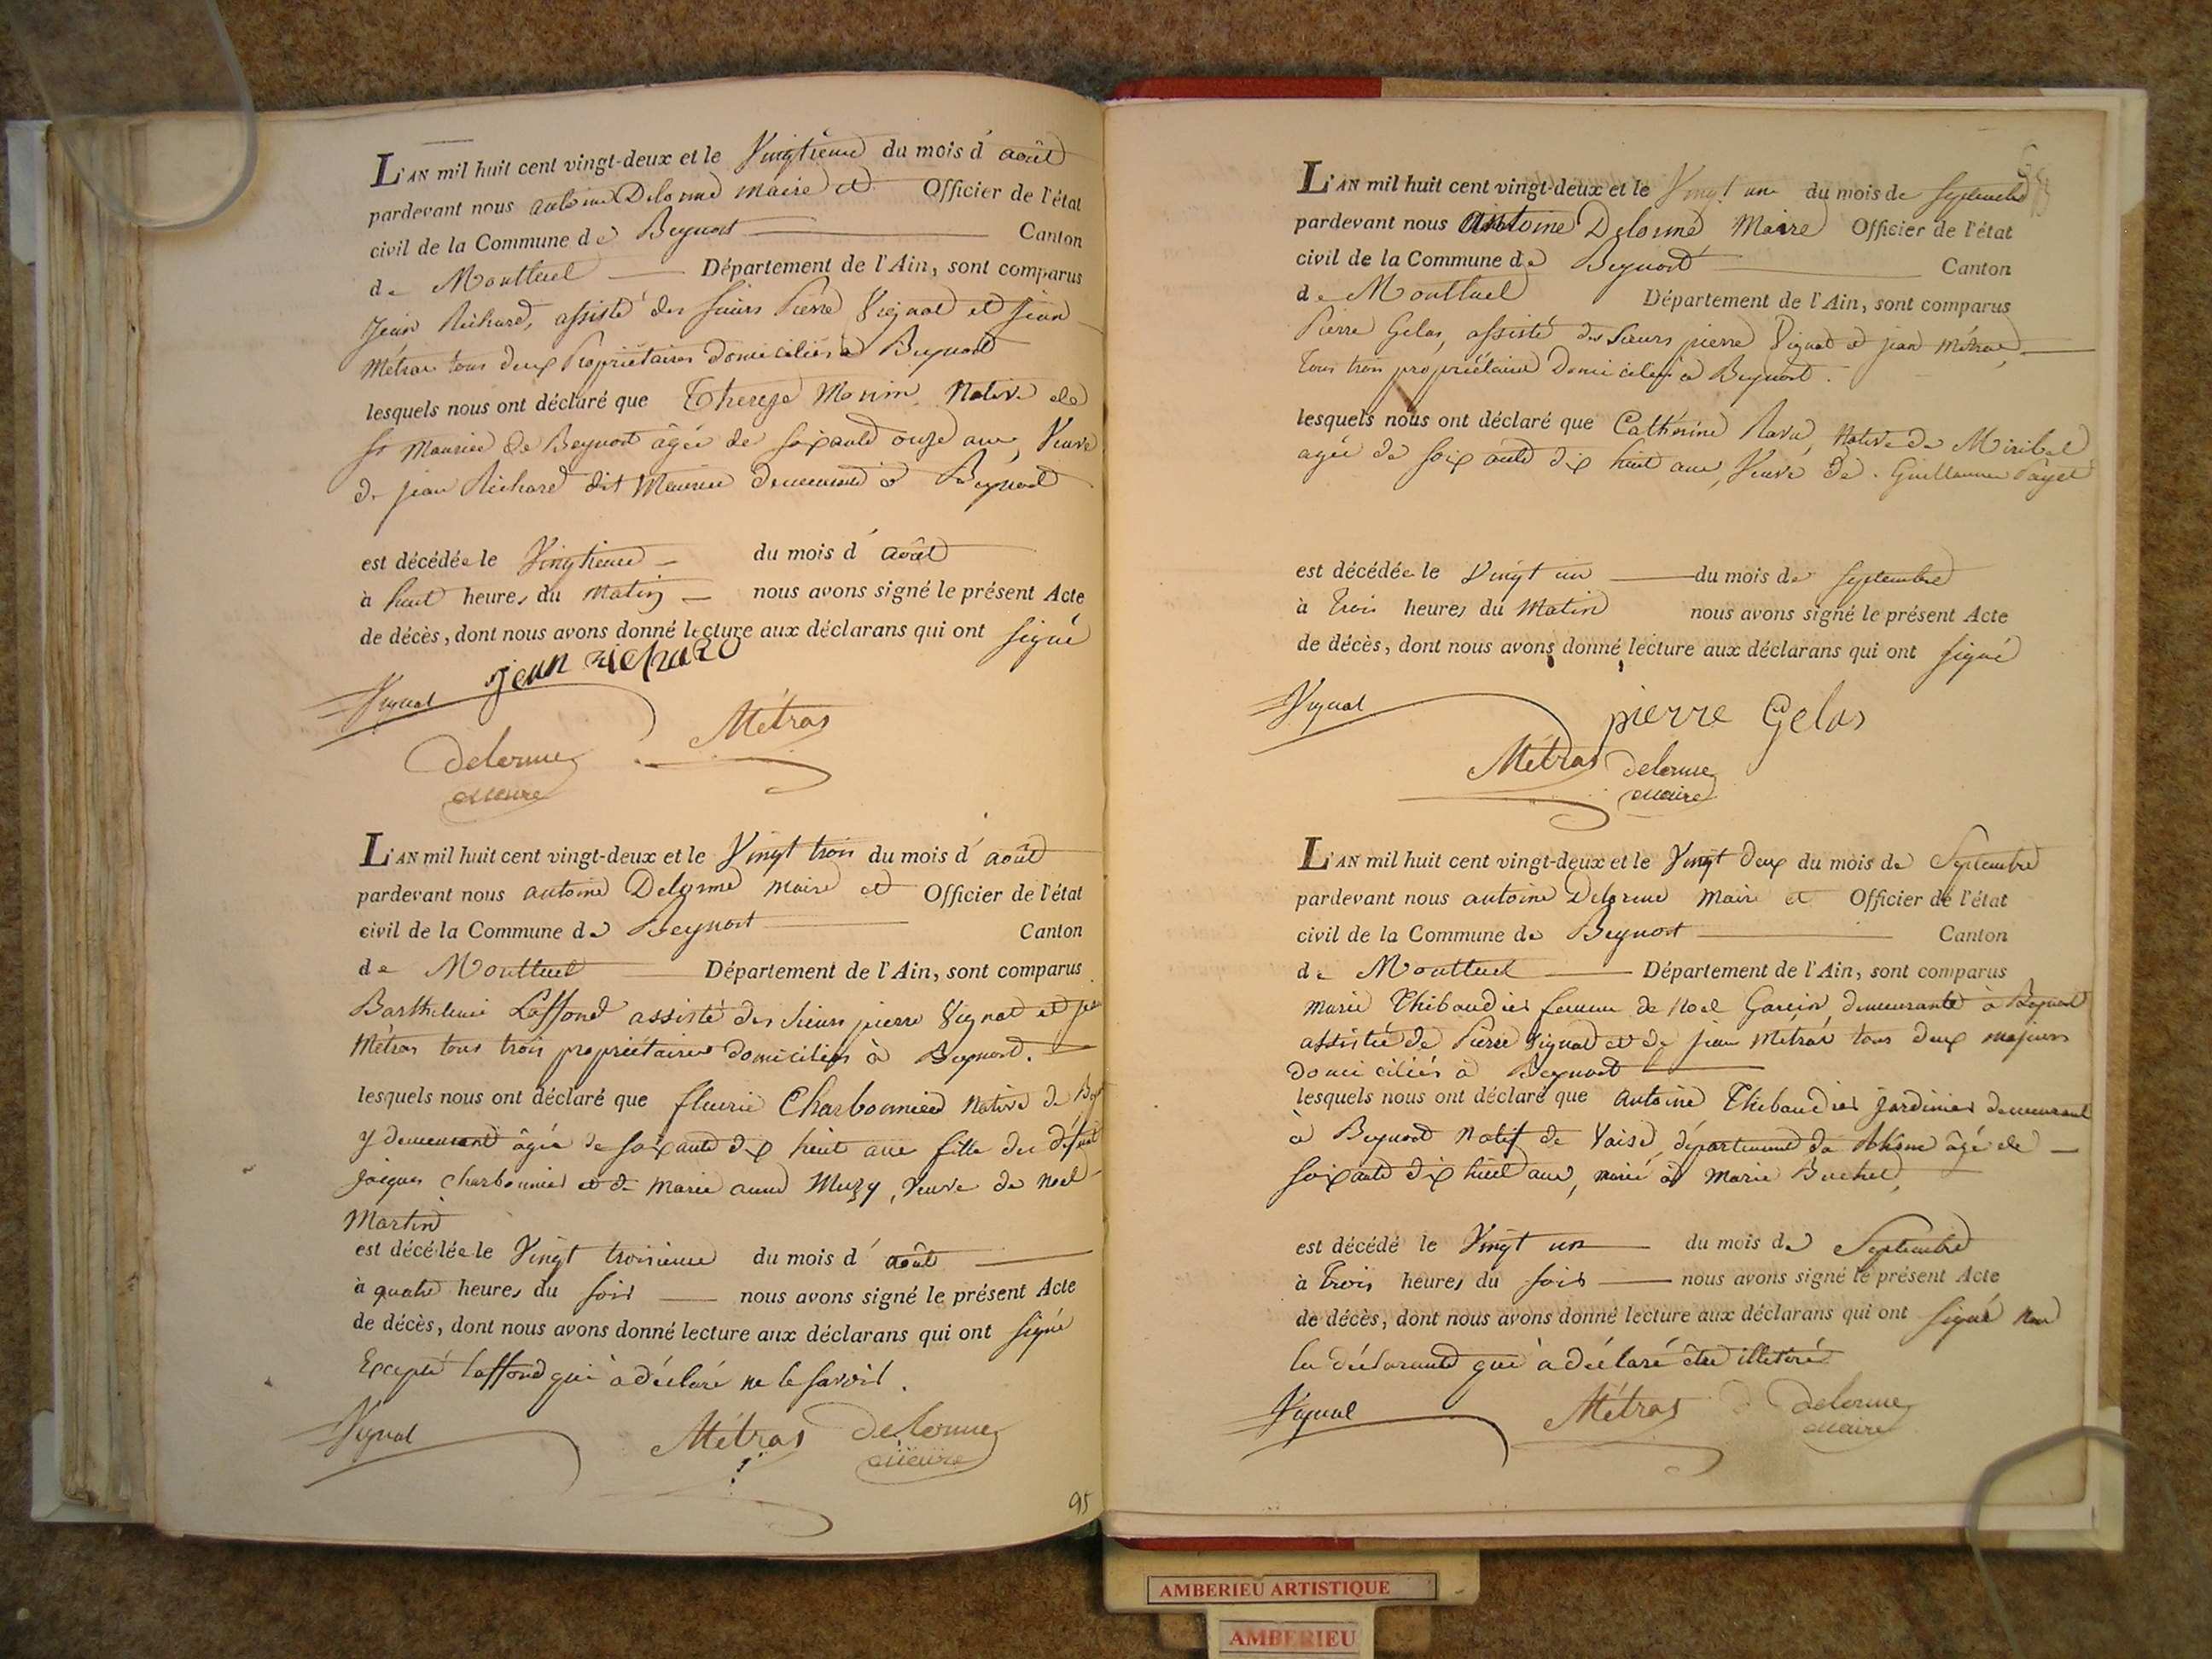 L'AN mil huit cent vingt-deux et le Vingtieme du mois d'août
pardevant nous antoine Delorme maire et Officier de l'état
civil de la Commune de Beynost Canton
de Montluel Département de l'Ain, sont comparus
Jean Richard, assisté des sieurs Pierre Vignat et jean
Métras tous deux Propriétaires domiciliés à Beynost
lesquels nous ont déclaré que Thereze Monin Native de
St Maurice de Beynost âgée de soixante onze ans, Veuve
de jean Richard dit Maurice demeurant à Beynost
est décédée le Vingtieme du mois d'août
à huit heures du matin nous avons signé le présent Acte
de décès, dont nous avons donné lecture aux déclarans qui ont signé
jean richard
Vignat
Métras
delorme
maire
L'AN mil huit cent vingt-deux et le Vingt trois du mois d'août
pardevant nous antoine Delorme maire et Officier de l'état
civil de la Commune de Beynost Canton
de Montluel Département de l'Ain, sont comparus
Barthelemi Laffond assisté des sieurs pierre Vignat et jean
Métras tous trois propriétaires domiciliés à Beynost.
lesquels nous ont déclaré que fleurie Charbonnier Native de
y demeurant âgée de soixante dix huit ans fille du défunt
jacques Charbonnier et de marie anne Muzy, Veuve de Noel
Martin
est décédée le Vingt troisieme du mois d'août
à quatre heures du soir nous avons signé le présent Acte
de décès, dont nous avons donné lecture aux déclarans qui ont signé
Excepté Laffond qui a déclaré ne le savoir.
Vignat Métras delorme
maire
95
L'AN mil huit cent vingt-deux et le Vingt un du mois de septembre
pardevant nous antoine Delorme Maire Officier de l'état
civil de la Commune de Beynost Canton
de Montluel Département de l'Ain, sont comparus
Pierre Gelas, assisté des sieurs pierre Vignat et jean Métras,
tous trois propriétaires Domiciliés à Beynost.
lesquels nous ont déclaré que Catherine Native de Miribel
agée de soixante dix huit ans, Veuve de Guillaume Payet
est décédée le Vingt un du mois de septembre
à trois heures du Matin nous avons signé le présent Acte
de décès, dont nous avons donné lecture aux déclarans qui ont signé
Vignat
pierre Gelas
Métras delorme
maire
L'AN mil huit cent vingt-deux et le Vingt deux du mois de Septembre
pardevant nous antoine Delorme Maire et Officier de l'état
civil de la Commune de Beynost Canton
de Montluel Département de l'Ain, sont comparus
Marie Thibaudier femme de Noel Garcin, demeurante à Beynost
assistée de Pierre Vignat et de jean Métras tous deux majeurs
domiciliés à Beynost
lesquels nous ont déclaré que antoine Thibaudier jardinier demeurant
à Beynost Natif de Vaise, département du Rhône âgé de
soixante dix huit ans, marié à Marie Buchet,
est décédé le Vingt un du mois de Septembre
à Trois heures du soir nous avons signé le présent Acte
de décès, dont nous avons donné lecture aux déclarans qui ont signé non
la déclarante qui a déclaré être illetiré
Vignat Métras delorme
maire
AMBERIEU ARTISTIQUE
AMBERIEU